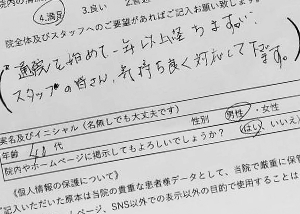 4.満足 3.良い
院全体及びスタッフへのご要望があればご記入お願い致します。
通院を始めて一年以上経ちますが、
スタッフの皆さん、気持ち良く対応して下さいます。
実名及びイニシャル（名無しでも大丈夫です）
性別 男性・女性
年齢 40 代
院内やホームページに掲示してもよろしいでしょうか？ はい いいえ
《個人情報の保護について》
記入いただいた原本は当院の貴重な患者様データとして、当院で厳重に保管
ページ、SNS以外での表示以外の目的で使用することは